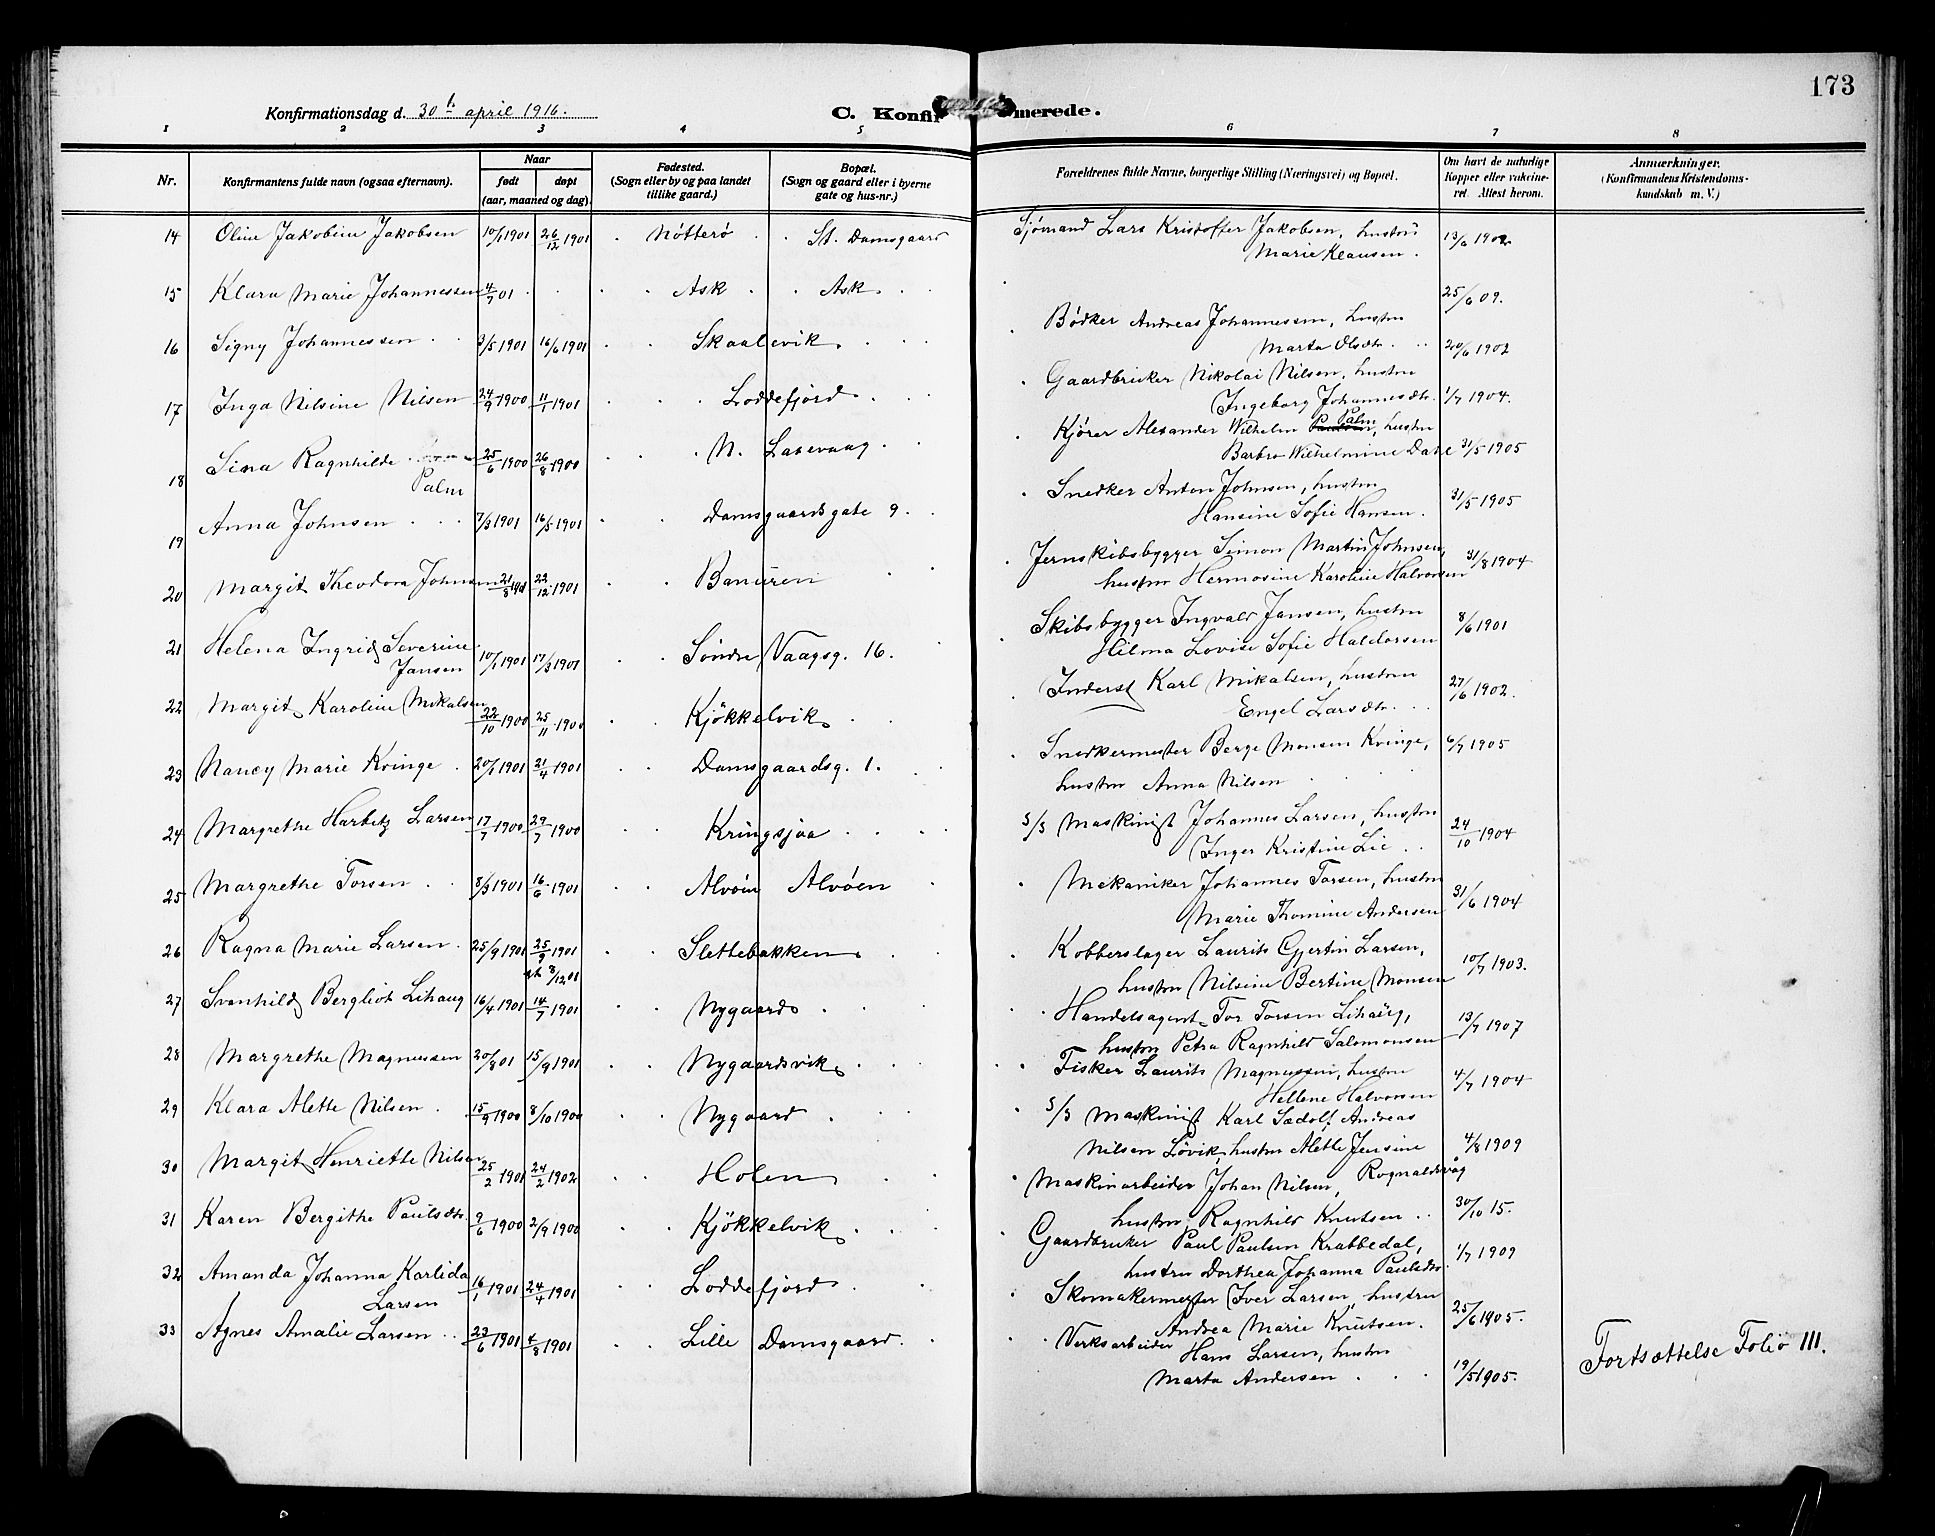 173
Konfirmationsdag d. 30te april 1916.
C. Konfirmerede.
1 2 3 4 5 6 7 8
Nr. Konfirmantens fulde navn (ogsaa efternavn). Naar født døpt (aar, maaned og dag). Fødested. (Sogn eller by og paa landet tillike gaard.) Bopæl. (Sogn og gaard eller i byerne gate og hus-nr.) Forældrenes fulde Navne, borgerlige Stilling (Næringsvei) og Bopæl. Om havt de naturlige Kopper eller vakcineret. Attest herom. Anmærkninger. (Konfirmandens Kristendomskundskab m. V.)
14 Oline Jakobine Jakobsen 10/1 1901 26/12 1901 Nøtterø St. Damsgaard Sjømand Lars Kristoffer Jakobsen, hustru 13/6 1902
Marie Klausen.
15 Klara Marie Johannessen 4/7 01 Ask Ask 25/6 09.
16 Signy Johannessen 3/5 1901 16/6 1901 Skaalevik. Bødker Andreas Johannessen, hustru
Marta Olsdtr. 20/6 1902
17 Inga Nilsine Nilsen 24/9 1900 11/1 1901 Loddefjord Gaardbruker Nikolai Nilsen, hustru
Ingeborg Johannesdtr. 1/7 1904.
18 Sina Ragnhilde Palm 25/6 1900 26/8 1900 N. Laxevaag Kjører Alexander Wilhelm Palm, hustru
Barbro Wilhelmine Dale 31/5 1905
19 Anna Johnsen 7/3 1901 16/5 1901 Damsgaardsgate 9. Snedker Anton Johnsen, hustru
Hansine Sofie Hansen. 31/5 1905
20 Margit Theodora Johnsen 21/8 1901 22/12 1901 Banuren Jernskibsbygger Simon Martin Johnsen,
hustru Hermosine Karoline Halvorsen 31/8 1904
21 Helena Ingrid Severine Jansen 10/1 1901 17/3 1901 Søndre Vaagsg. 16. Skibsbygger Ingvald Jansen, hustru
Hilma Lovise Sofie Haldorsen 8/6 1901
22 Margit Karoline Mikalsen 22/10 1900 25/11 1900 Kjøkkelvik Inderst Karl Mikalsen, hustru
Engel Larsdtr. 27/6 1902.
23 Nancy Marie Kvinge 20/1 1901 21/4 1901 Damsgaardsg. 1. Snedkermester Berge Monsen Kvinge, 6/7 1905
hustru Anna Nilsen
24 Margrethe Harbitz Larsen 17/7 1900 29/7 1900 Kringsjaa S/S Maskinist Johannes Larsen, hustru
Inger Kristine Lie 24/10 1904
25 Margrethe Torsen 8/3 1901 16/6 1901 Alvøen Alvøen Mekaniker Johannes Torsen, hustru
Marie Thomine Andersen 31/6 1904
26 Ragna Marie Larsen 25/9 1901 25/9 1901 Slettebakken Kobberslager Laurits Gjertin Larsen,
st. 8/12 01 hustru Nilsine Bertine Monsen 10/7 1903.
27 Svanhild Bergliot Lihaug 16/4 1901 14/7 1901 Nygaard Handelsagent Tor Torsen Lihaug,
hustru Petra Ragnhild Salomonsen 13/7 1907
28 Margrethe Magnussen 20/8 01 15/9 1901 Nygaardsvik Fisker Laurits Magnussen, hustru
Hellene Halvorsen 4/7 1904
29 Klara Alette Nilsen 15/9 1900 8/10 1900 Nygaard S/S Maskinist Karl Sædolf Andreas
Nilsen Løvik, hustru Alette Jensine Rognaldsvåg 4/8 1909
30 Margit Henriette Nilsen 25/2 1901 24/2 1902 Holen Maskinarbeider Johan Nilsen,
hustru Ragnhild Knutsen 30/10 15.
31 Karen Bergithe Paulsdtr. 9/6 1900 2/9 1900 Kjøkkelvik Gaardbruker Paul Paulsen Krabbedal,
hustru Dorthea Johanna Paulsdtr. 1/7 1909
32 Amanda Johanna Karlida Larsen 16/1 1901 24/4 1901 Loddefjord Skomakermester Iver Larsen, hustru
Andrea Marie Knutsen. 25/6 1905.
33 Agnes Amalie Larsen 23/6 1901 4/8 1901 Lille Damsgaard. Verksarbeider Hans Larsen, hustru
Marta Andersen 19/5 1905.
Fortsættelse Folio 111.